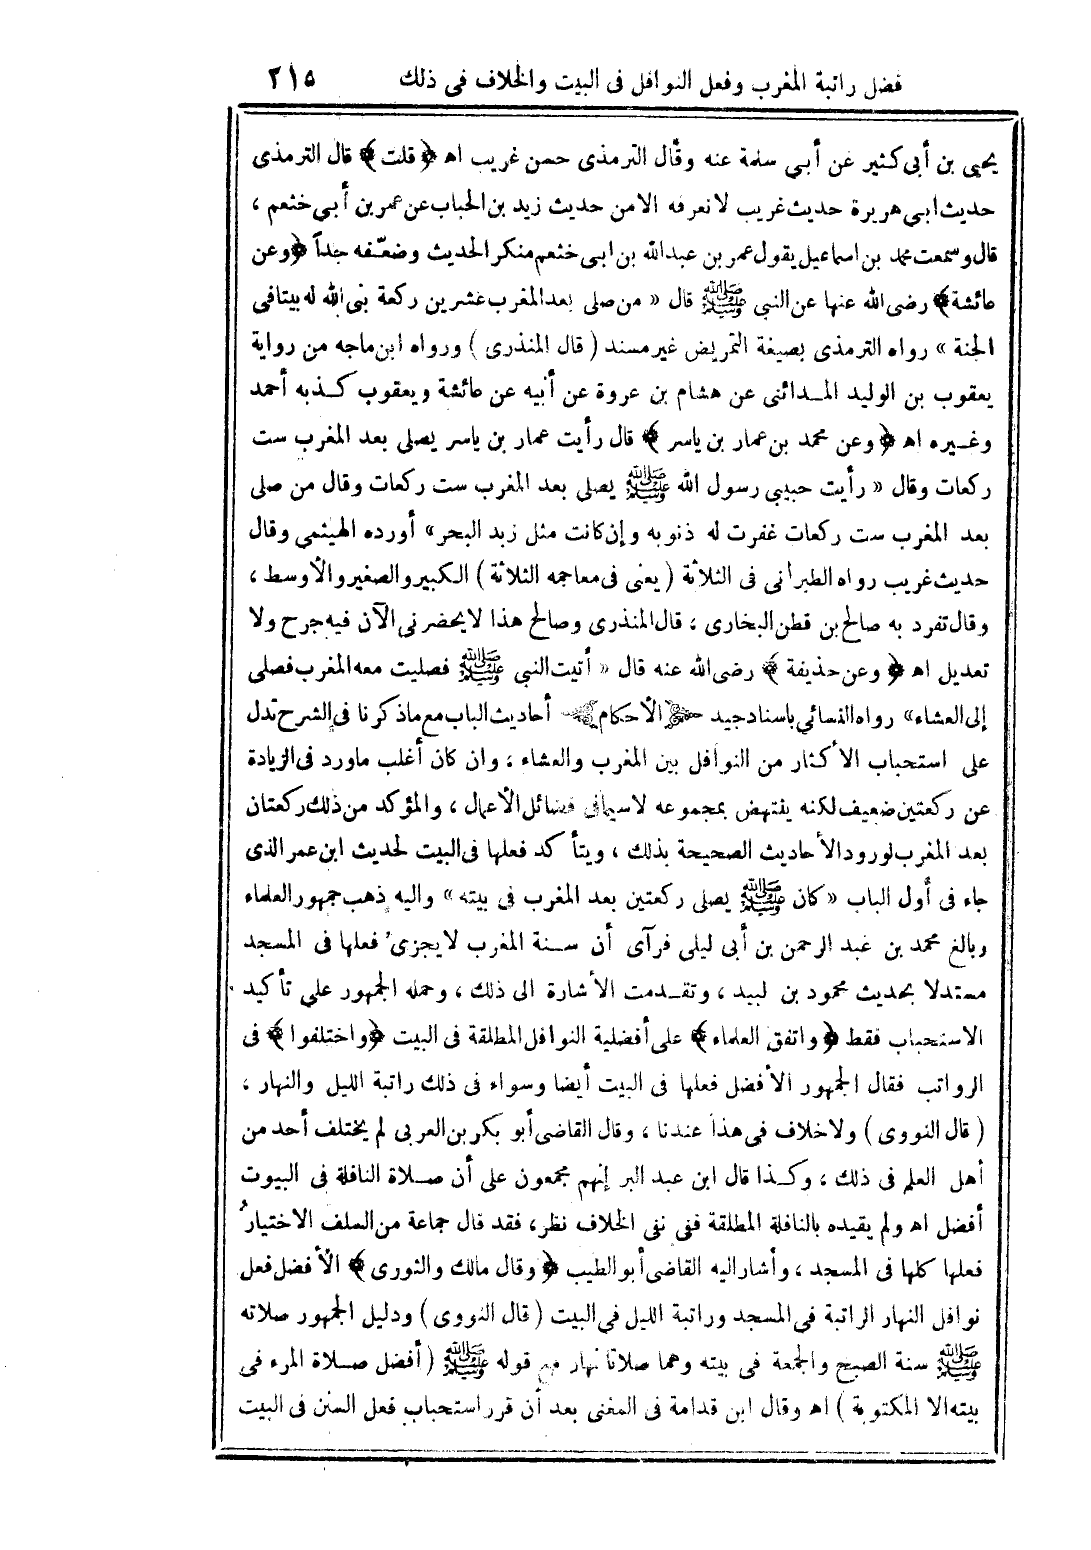 فضل راتبة المغرب وفعل النوافل فى البيت والخلاف فى ذلك ٢١٥
يحيى بن أبى كثير عن أبي سلمة عنه وقال الترمذى حسن غريب اه ﴿ قلت ﴾ قال الترمذى
حديث ابي هريرة حديث غريب لا نعرفه الا من حديث زيد بن الحباب عن عمر بن أبي خثعم ،
قال وسمعت محمد بن اسماعيل يقول عمر بن عبد الله بن ابى خثعم منكر الحديث وضعّفه جداً ﴿ وعن
عائشة ﴾ رضى الله عنها عن النبي ﷺ قال « من صلى بعد المغرب عشرين ركعة بنى الله له بيتا فى
الجنة » رواه الترمذى بصيغة التمريض غير مسند ( قال المنذرى ) ورواه ابن ماجه من رواية
يعقوب بن الوليد المدائنى عن هشام بن عروة عن أبيه عن عائشة ويعقوب كذبه أحمد
وغيره اه ﴿ وعن محمد بن عمار بن ياسر ﴾ قال رأيت عمار بن ياسر يصلى بعد المغرب ست
ركعات وقال « رأيت حبيبي رسول الله ﷺ يصلى بعد المغرب ست ركعات وقال من صلى
بعد المغرب ست ركعات غفرت له ذنوبه وإن كانت مثل زبد البحر » أورده الهيثمى وقال
حديث غريب رواه الطبرانى فى الثلاثة ( يعنى فى معاجمه الثلاثة ) الكبير والصغير والأوسط ،
وقال تفرد به صالح بن قطن البخارى ، قال المنذرى وصالح هذا لا يحضرنى الآن فيه جرح ولا
تعديل اه ﴿ وعن حذيفة ﴾ رضى الله عنه قال « أتيت النبي ﷺ فصليت معه المغرب فصلى
إلى العشاء » رواه النسائي باسناد جيد ﴿ الأحكام ﴾ أحاديث الباب مع ما ذكرنا فى الشرح تدل
على استحباب الأكثار من النوافل بين المغرب والعشاء ، وان كان أغلب ما ورد فى الزيادة
عن ركعتين ضعيف لكنه ينتهض بمجموعه لا سيما فى فضائل الأعمال ، والمؤكد من ذلك ركعتان
بعد المغرب لورود الأحاديث الصحيحة بذلك ، ويتأكد فعلها فى البيت لحديث ابن عمر الذى
جاء فى أول الباب « كان ﷺ يصلى ركعتين بعد المغرب فى بيته » واليه ذهب جمهور العلماء
وبالغ محمد بن عبد الرحمن بن أبى ليلى فرآى أن سنة المغرب لا يجزىء فعلها فى المسجد
مستدلا بحديث محمود بن لبيد ، وتقدمت الأشارة الى ذلك ، وحمله الجمهور على تأكيد
الاستحباب فقط ﴿ واتفق العلماء ﴾ على أفضلية النوافل المطلقة فى البيت ﴿ واختلفوا ﴾ فى
الرواتب فقال الجمهور الأفضل فعلها فى البيت أيضا وسواء فى ذلك راتبة الليل والنهار ،
( قال النووى ) ولا خلاف فى هذا عندنا ، وقال القاضى أبو بكر بن العربى لم يختلف أحد من
أهل العلم فى ذلك ، وكذا قال ابن عبد البر إنهم مجمعون على أن صلاة النافلة فى البيوت
أفضل اه ولم يقيده بالنافلة المطلقة ففى نفى الخلاف نظر، فقد قال جماعة من السلف الاختيارُ
فعلها كلها فى المسجد ، وأشار اليه القاضى أبو الطيب ﴿ وقال مالك والثورى ﴾ الأفضل فعل
نوافل النهار الراتبة فى المسجد وراتبة الليل فى البيت ( قال النووى ) ودليل الجمهور صلاته
ﷺ سنة الصبح والجمعة فى بيته وهما صلاتا نهار مع قوله ﷺ ( أفضل صلاة المرء فى
بيته الا المكتوبة ) اه وقال ابن قدامة فى المغنى بعد أن قرر استحباب فعل السنن فى البيت